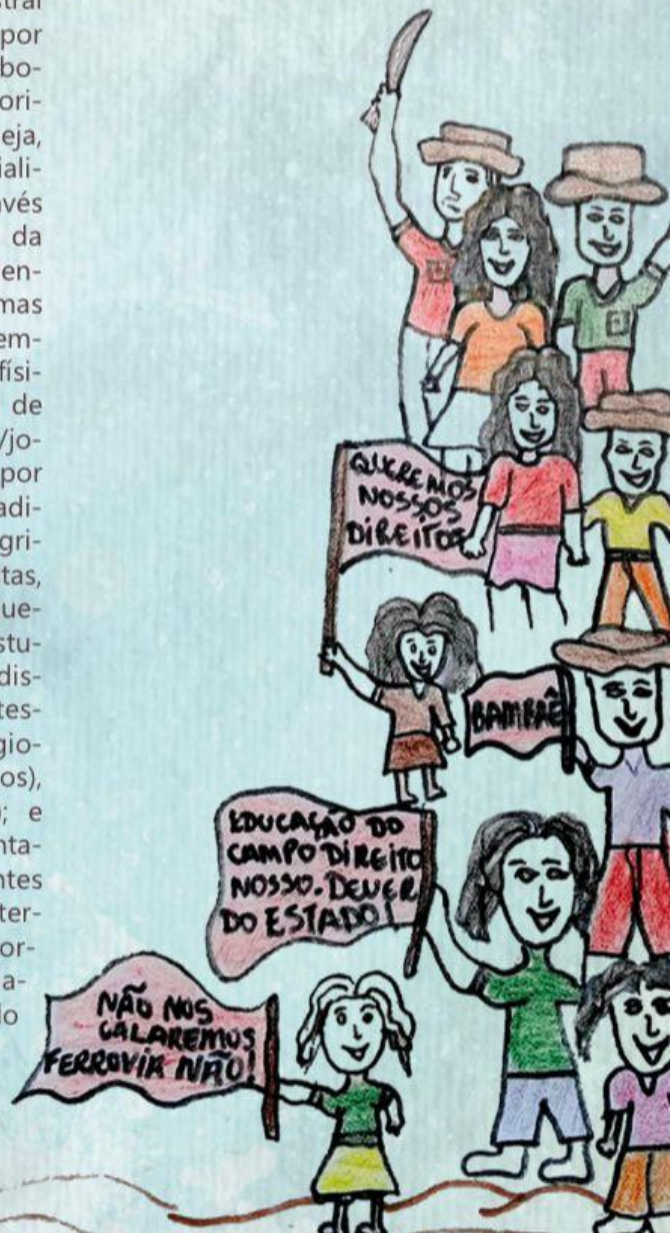 strar
por
bo-
ori-
eja,
iali-
avés
da
en-
mas
em-
físi-
de
/jo-
por
adi-
gri-
tas,
ue-
stu-
dis-
tes-
gio-
os),
; e
nta-
ntes
ter-
or-
a-
lo
QUEREMOS
NOSSOS
DIREITOS
BAMBAÊ
EDUCAÇÃO DO
CAMPO DIREITO
NOSSO. DEVER
DO ESTADO!
NÃO NOS
CALAREMOS
FERROVIA NÃO!